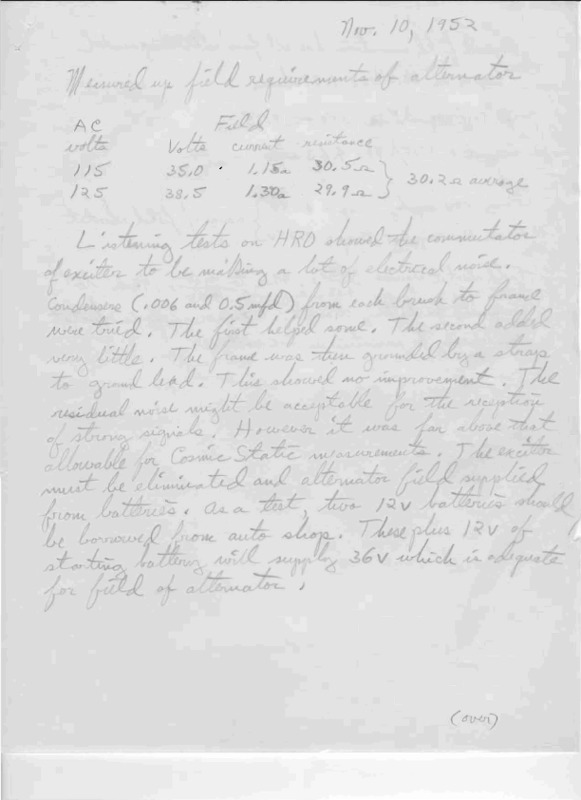 Nov. 10, 1952
Measured up field requirements of alternator
AC Field
volts Volts current resistance
115 35.0 1.15a 30.5Ω
125 38.5 1.30a 29.9Ω } 30.2Ω average
Listening tests on HRO showed the commutator
of exciter to be making a lot of electrical noise.
Condensers (.006 and 0.5 mfd) from each brush to frame
were tried. The first helped some. The second added
very little. The frame was then grounded by a strap
to ground lead. This showed no improvement. The
residual noise might be acceptable for the reception
of strong signals. However it was far above that
allowable for Cosmic Static measurements. The exciter
must be eliminated and alternator field supplied
from batteries. As a test, two 12V batteries should
be borrowed from auto shop. These plus 12V of
starting battery will supply 36V which is adequate
for field of alternator.
(over)